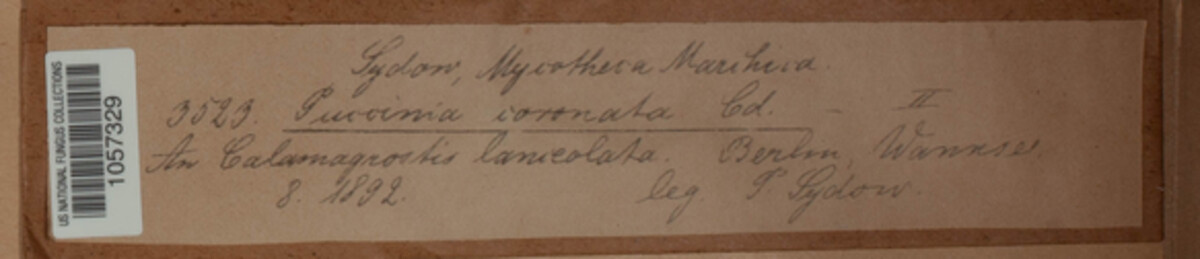 Sydow, Mycotheca Marchica.
3523. Puccinia coronata Cd. – II
An Calamagrostis lanceolata. Berlin, Wannsee.
8. 1892. leg. P. Sydow.
US NATIONAL FUNGUS COLLECTIONS
10577329